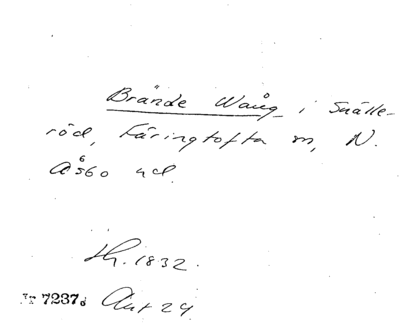 Brände Wång i Snälle-
röd, Färingtofta sn, N.
Åsbo hd.
1832.
Nr 7237d Ant 24